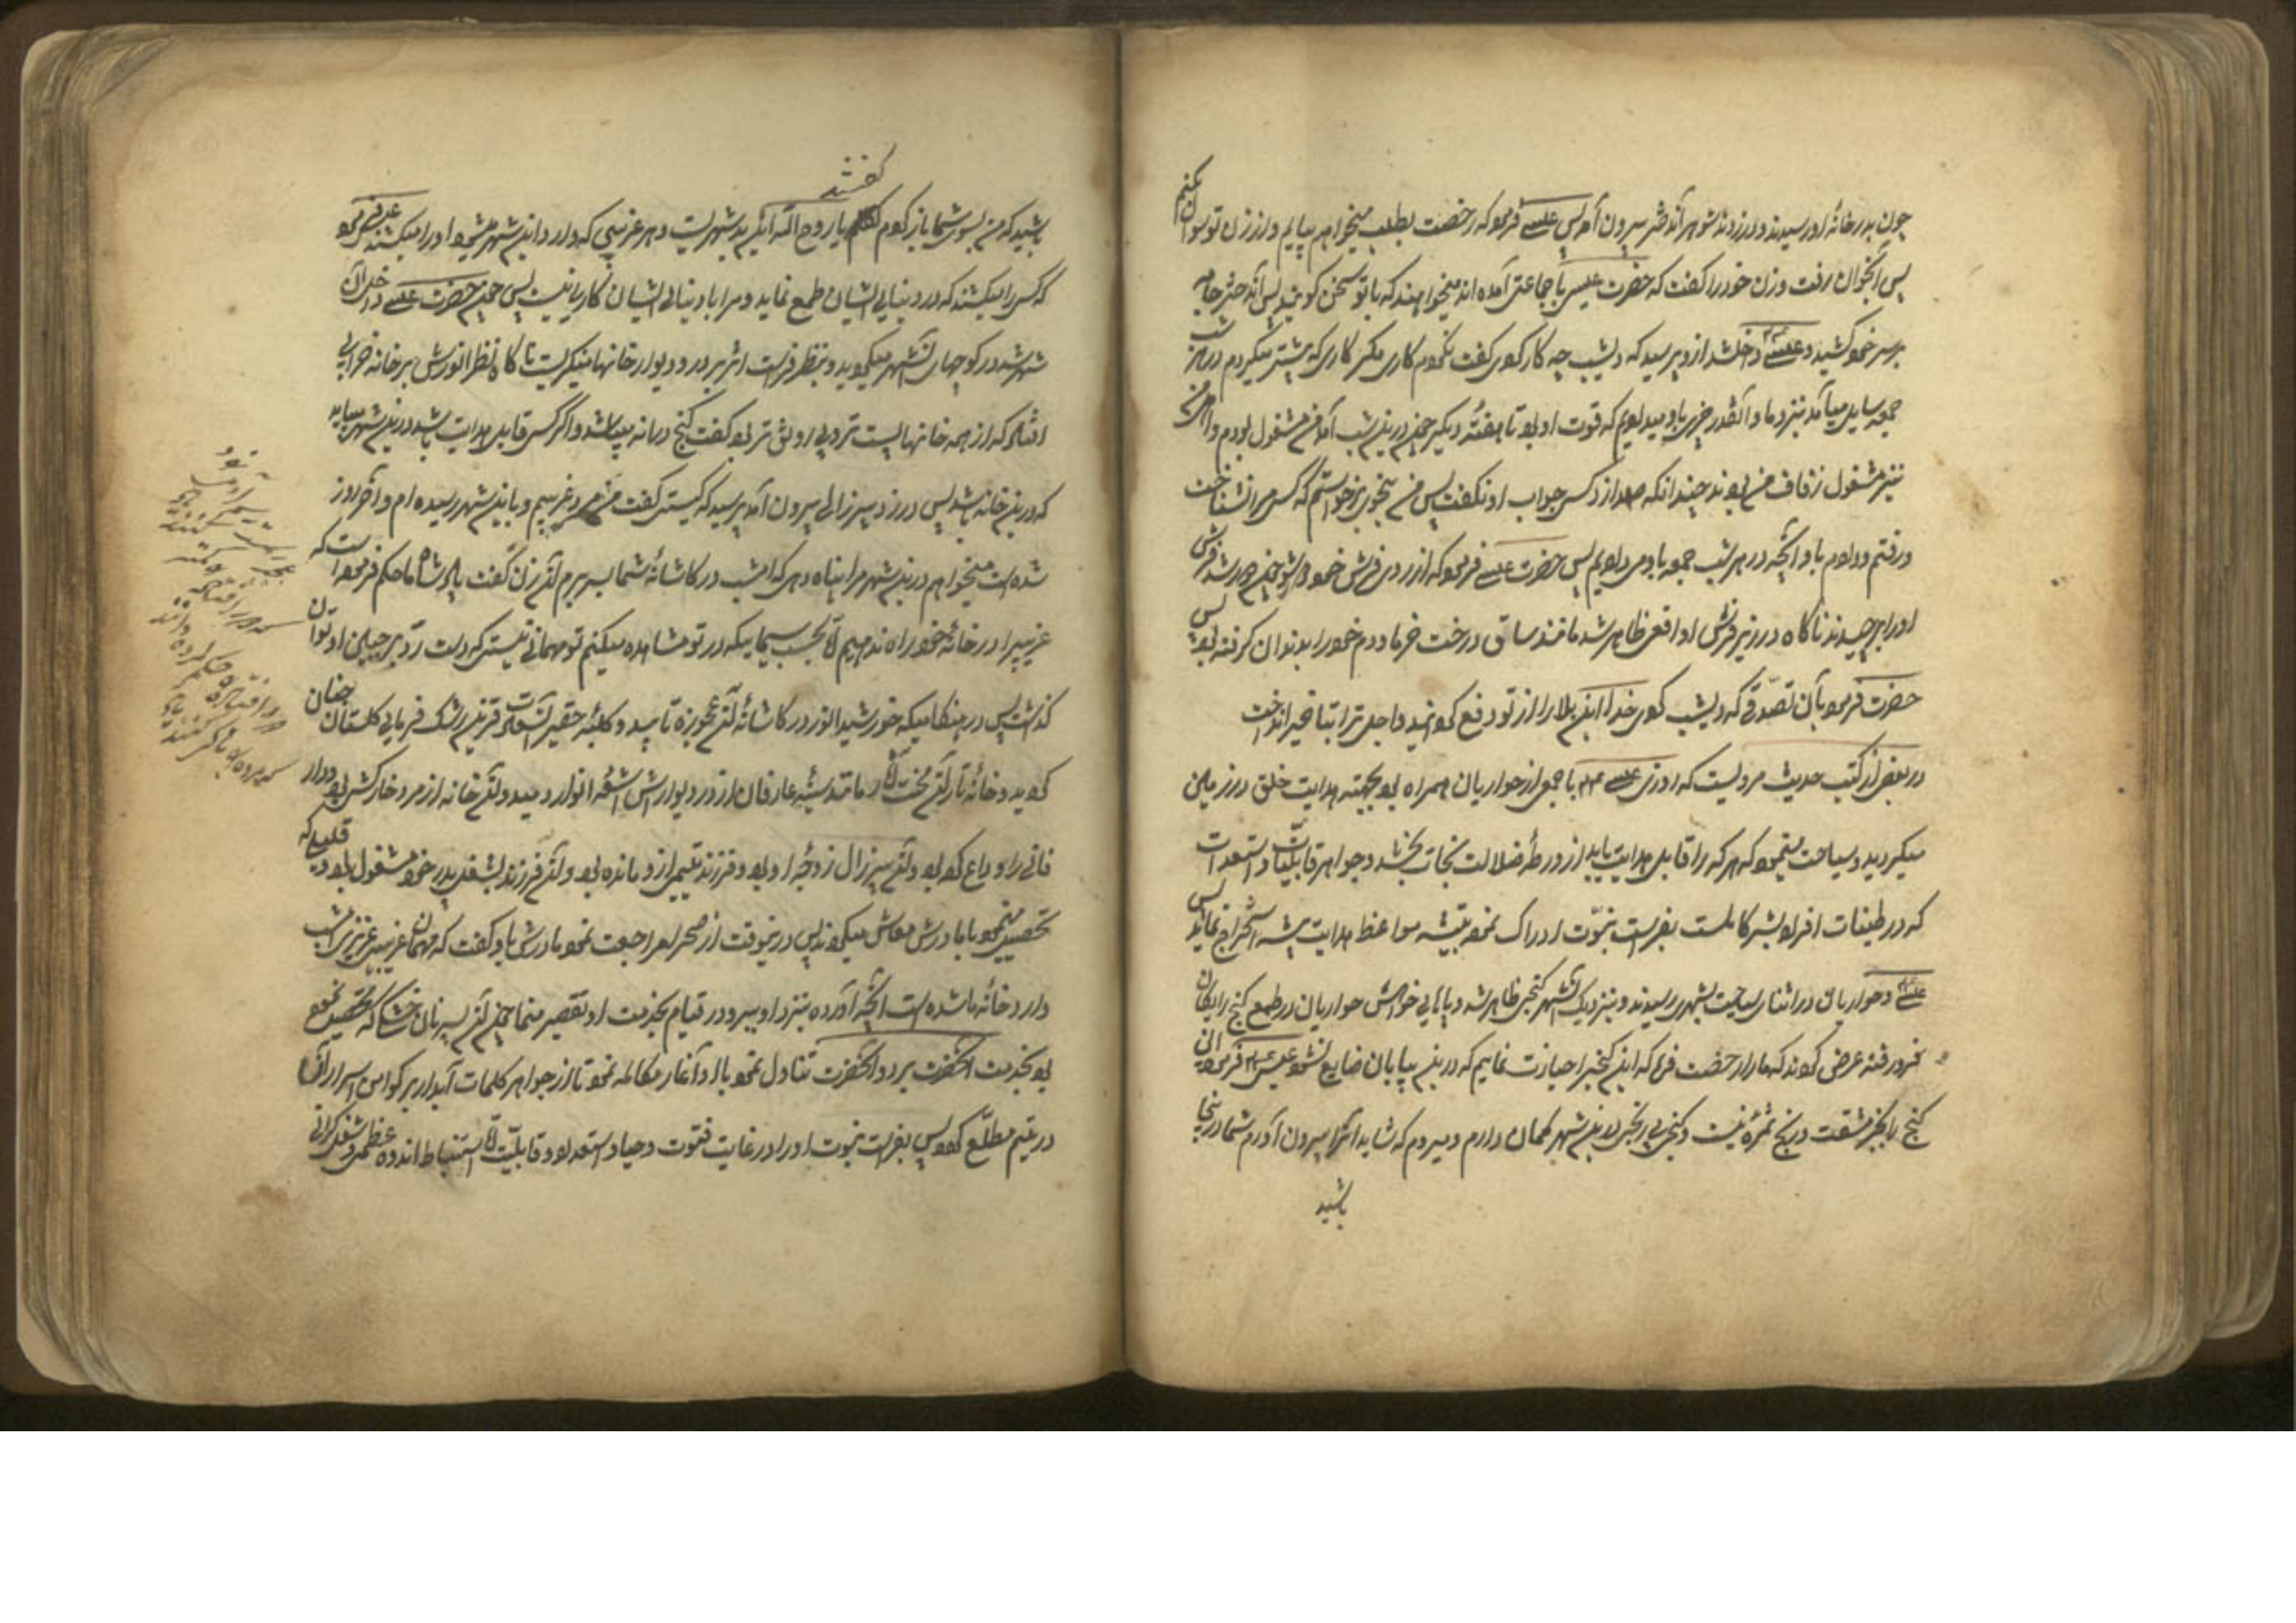 چون بدر خانهٔ او رسیدند و در زدند شوهر آندختر بیرون آمد پس عیسی فرمود که رخصت بطلب میخواهم بیایم و از زن تو سوال کنم
پس آنجوان رفت و زن خود را گفت که حضرت عیسی با جماعتی آمده اند میخواهند که با تو سخن گویند پس آندختر جامه
بر سر خود کشید و عیسی داخل شد از و پرسید که دیشب چه کار کردی گفت نکردم کاری مگر کاری که پیشتر میکردم در هر شب
جمعه سایلی میآمد بنزد ما و آنقدر چیزی باو میدادیم که قوت او بود تا هفتهٔ دیگر چون درین شب آمد من مشغول بودم و اهل من
نیز مشغول زفاف من بودند چندانکه صدا زد کسی جواب او نگفت پس من بنحوی برخواستم که کسی مرا نشناخت
و رفتم و دادم باو آنچه در هر شب جمعه باو می دادیم پس حضرت عیسی فرمود که از روی فرش خود دور شو چون دور شد فرش
او را برچیدند ناگاه در زیر فرش او افعی ظاهر شد مانند ساق درخت خرما و دم خود را بدندان گرفته بود پس
حضرت فرمود بآن تصدّقی که دیشب کردی خدا این بلا را از تو دفع گردانید و اجل ترا بتأخیر انداخت
در بعضی از کتب حدیث مرویست که روزی عیسی ع م با جمعی از حواریان همراه بود بجهته هدایت خلق در زمین
میگردید و سیاحت مینمود که هر که را قابل هدایت یابد از ورطهٔ ضلالت نجات بخشد و جواهر قابلیّات و استعدادات
که در طینات افراد بشر کامنست بفراست نبوّت ادراک نموده بتیشه مواعظ هدایت پیشه استخراج نماید پس
عیسی و حواریان در اثنای سیاحت بشهری رسیدند و بنزدیک آنشهر گنجی ظاهر شد و پاهای خواهش حواریان در طمع گنج رایگان
فرو رفته عرض کردند که ما را رخصت فرما که این گنج را حیازت نماییم که درین بیابان ضایع نشود عیسی ع م فرمود این
گنج را بجز مشقت و رنج ثمرهٔ نیست و گنجی بی رنجی درین شهر گمان دارم و میروم که شاید آنرا بیرون آورم شما در اینجا
باشید
باشید که من بسوی شما باز گردم گفتند یا روح اللّه این بد شهریست و هر غریبی که وارد این شهر میشود او را میکشند عیسی فرمود
که کسی را میکشند که در دنیای ایشان طمع نماید و مرا با دنیای ایشان کاری نیست پس چون حضرت عیسی داخل آن
شهر شد در کوچهای آنشهر میگردید و بنظر فراست اثر بر در و دیوار خانها مینگریست تا ناگاه نظر انورش بر خانه خرابی
افتاد که از همه خانها پست تر و بی رونق تر بود گفت گنج در ویرانه میباشد و اگر کسی قابل هدایت باشد درین شهر میباید
که درین خانه باشد پس در زد پیر زالی بیرون آمد پرسید که کیستی گفت من مرد غریبم و باین شهر رسیده ام و آخر روز
شده است میخواهم درین شهر مرا پناه دهی که امشب در کاشانهٔ شما بسر برم آن زن گفت پادشاه ما حکم فرموده است که
غریبی را در خانهٔ خود راه ندهیم امّا بحسب سیماییکه در تو مشاهده میکنم تو مهمانی نیستی که دست رد بر جبین او توان
گذاشت پس در هنگامیکه خورشید انور در کاشانهٔ آن عجوزه تابید و کلبهٔ حقیر آن سعادت قرین رشک فرمای گلستان جنان
گردید و خانهٔ تار آن سخت کار مانند سینهٔ عارفان از در و دیوارش اشعهٔ انوار دمید و آن خانه از مرد خارکشی بود و دار
فانی را وداع کرده بود و آن پیر زال زوجهٔ او بود و فرزند یتیمی از و مانده بود و آن فرزند بشغل پدر خود مشغول بود و قلیلی که
تحصیل مینمود با مادرش معاش میکردند پس درینوقت از صحرا مراجعت نمود مادرش باو گفت که مهمان غریب عزیزی امشب
وارد خانهٔ ما شده است آنچه آورده بنزد او ببر و در قیام بخدمت او تقصیر منما چون آن پسر نان خشکی که تحصیل نموده
بود بخدمت آنحضرت برد و آنحضرت تناول نمود با او آغاز مکالمه نمود تا از جواهر کلمات آبدار بر گوامن اسرار آن
در یتیم مطلّع گردد پس بفراست نبوت او را در غایت فتوت و حیا و استعداد و قابلیّت یافت امّا استنباط اندوه عظمی و شغل گرانی